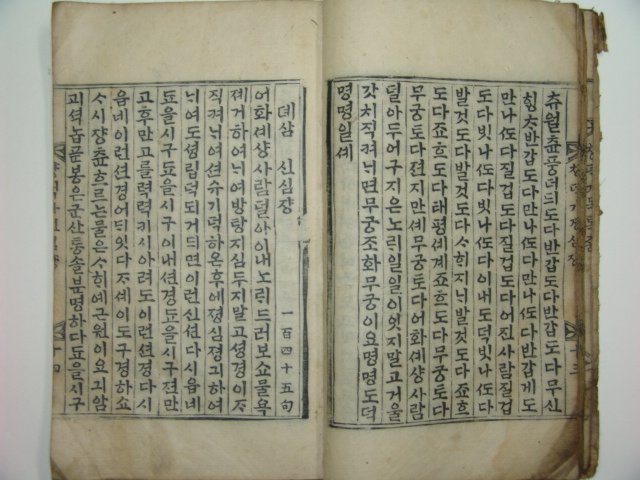 츄월츈풍더듸도다반갑도다반갑도다무신
힝차반갑도다만나또다만나또다반갑게도
만나또다질겁도다질겁도다어진사람질겁
도다빗나또다빗나또다이내도덕빗나또다
발것도다발것도다사히지늬발것도다죠흐
도다죠흐도다태평셰계죠흐도다무궁도다
무궁토다젼지만셰무궁토다어화셰샹사람
덜아두어구지은노릭일일이잇지말고거울
갓치직켜늬면무궁조화무궁이요명명도덕
명명일셰
뎨삼 신심쟝 一百四十五句
어화셰샹사람덜아이내노릭드러보쇼물욕
졔거하여늬여방탕지심두지말고셩경이자
직켜늬여션슈기덕하온후에졍심졍긔하여
늬여도셩립덕되거듸면이런신션다시업네
됴을시구됴을시구이내션경됴을시구젼만
고후만고를력력키시아려도이런션경다시
읍네이런션경어듸잇다자셰이도구경하쇼
사시쟝츈흐르는물은사히예근원이요긔암
괴셕놉푼봉은군산통솔분명하다됴을시구
十三
十四